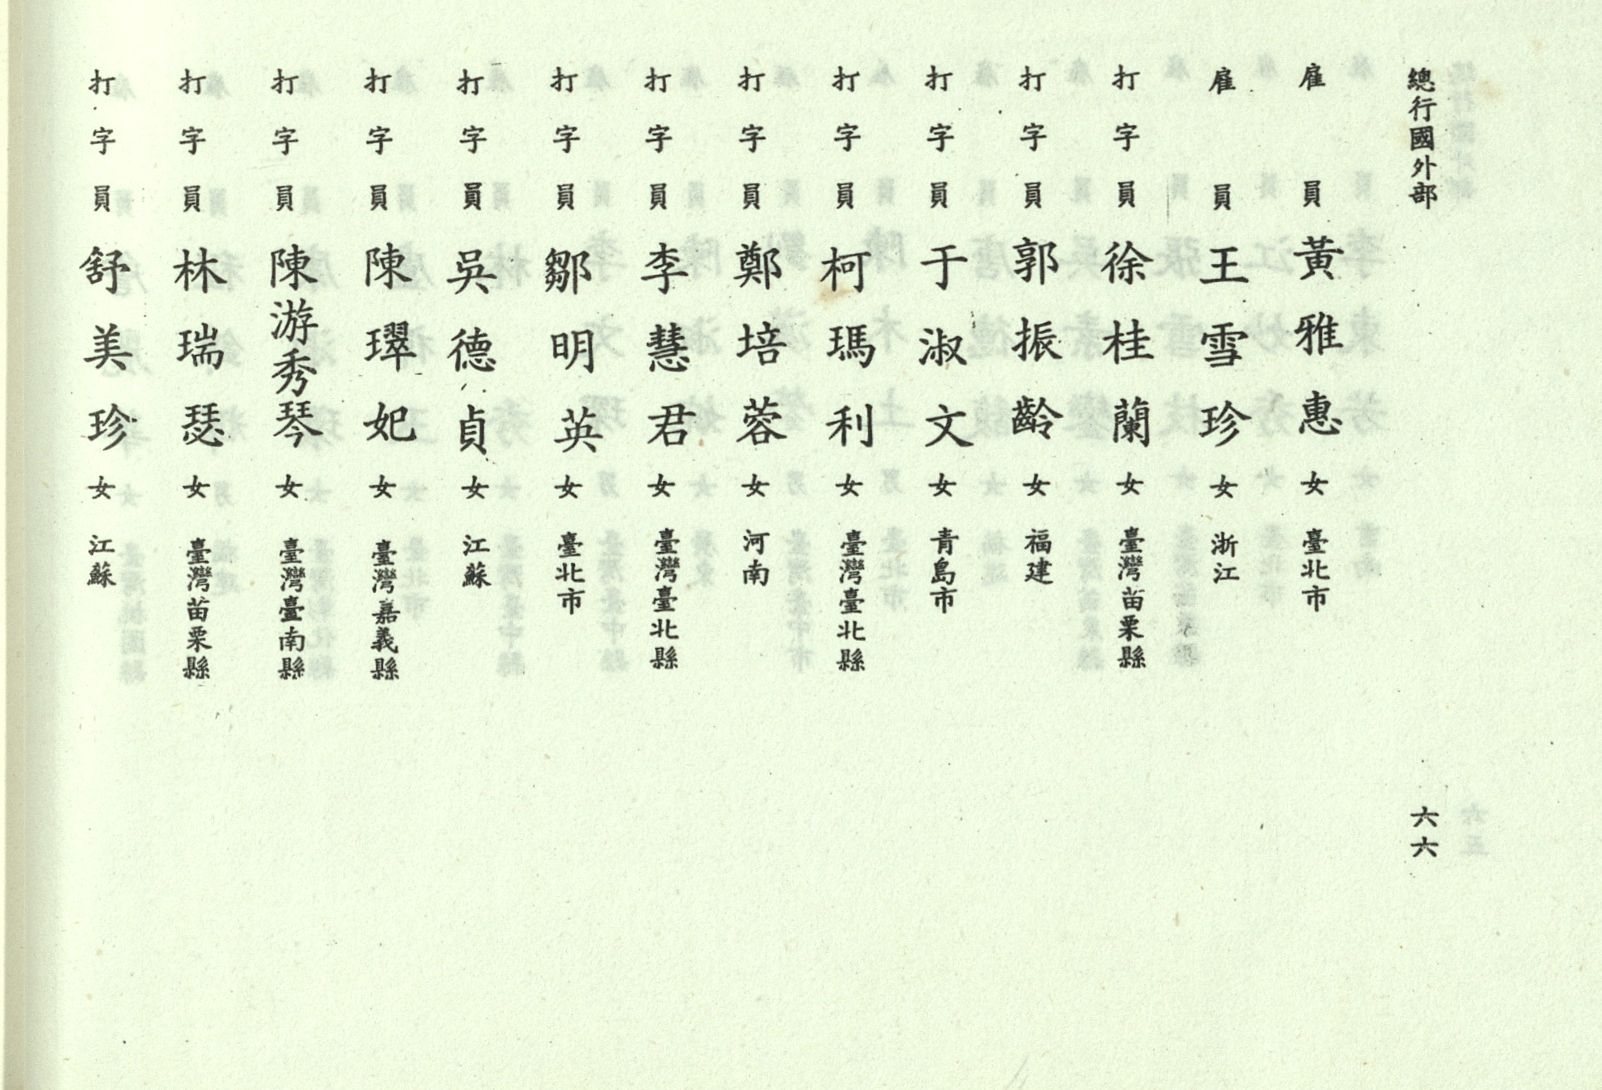 總行國外部 六六
雇員 黃雅惠 女 臺北市
雇員 王雪珍 女 浙江
打字員 徐桂蘭 女 臺灣苗栗縣
打字員 郭振齡 女 福建
打字員 于淑文 女 青島市
打字員 柯瑪利 女 臺灣臺北縣
打字員 鄭培蓉 女 河南
打字員 李慧君 女 臺灣臺北縣
打字員 鄒明英 女 臺北市
打字員 吳德貞 女 江蘇
打字員 陳璻妃 女 臺灣嘉義縣
打字員 陳游秀琴 女 臺灣臺南縣
打字員 林瑞瑟 女 臺灣苗栗縣
打字員 舒美珍 女 江蘇